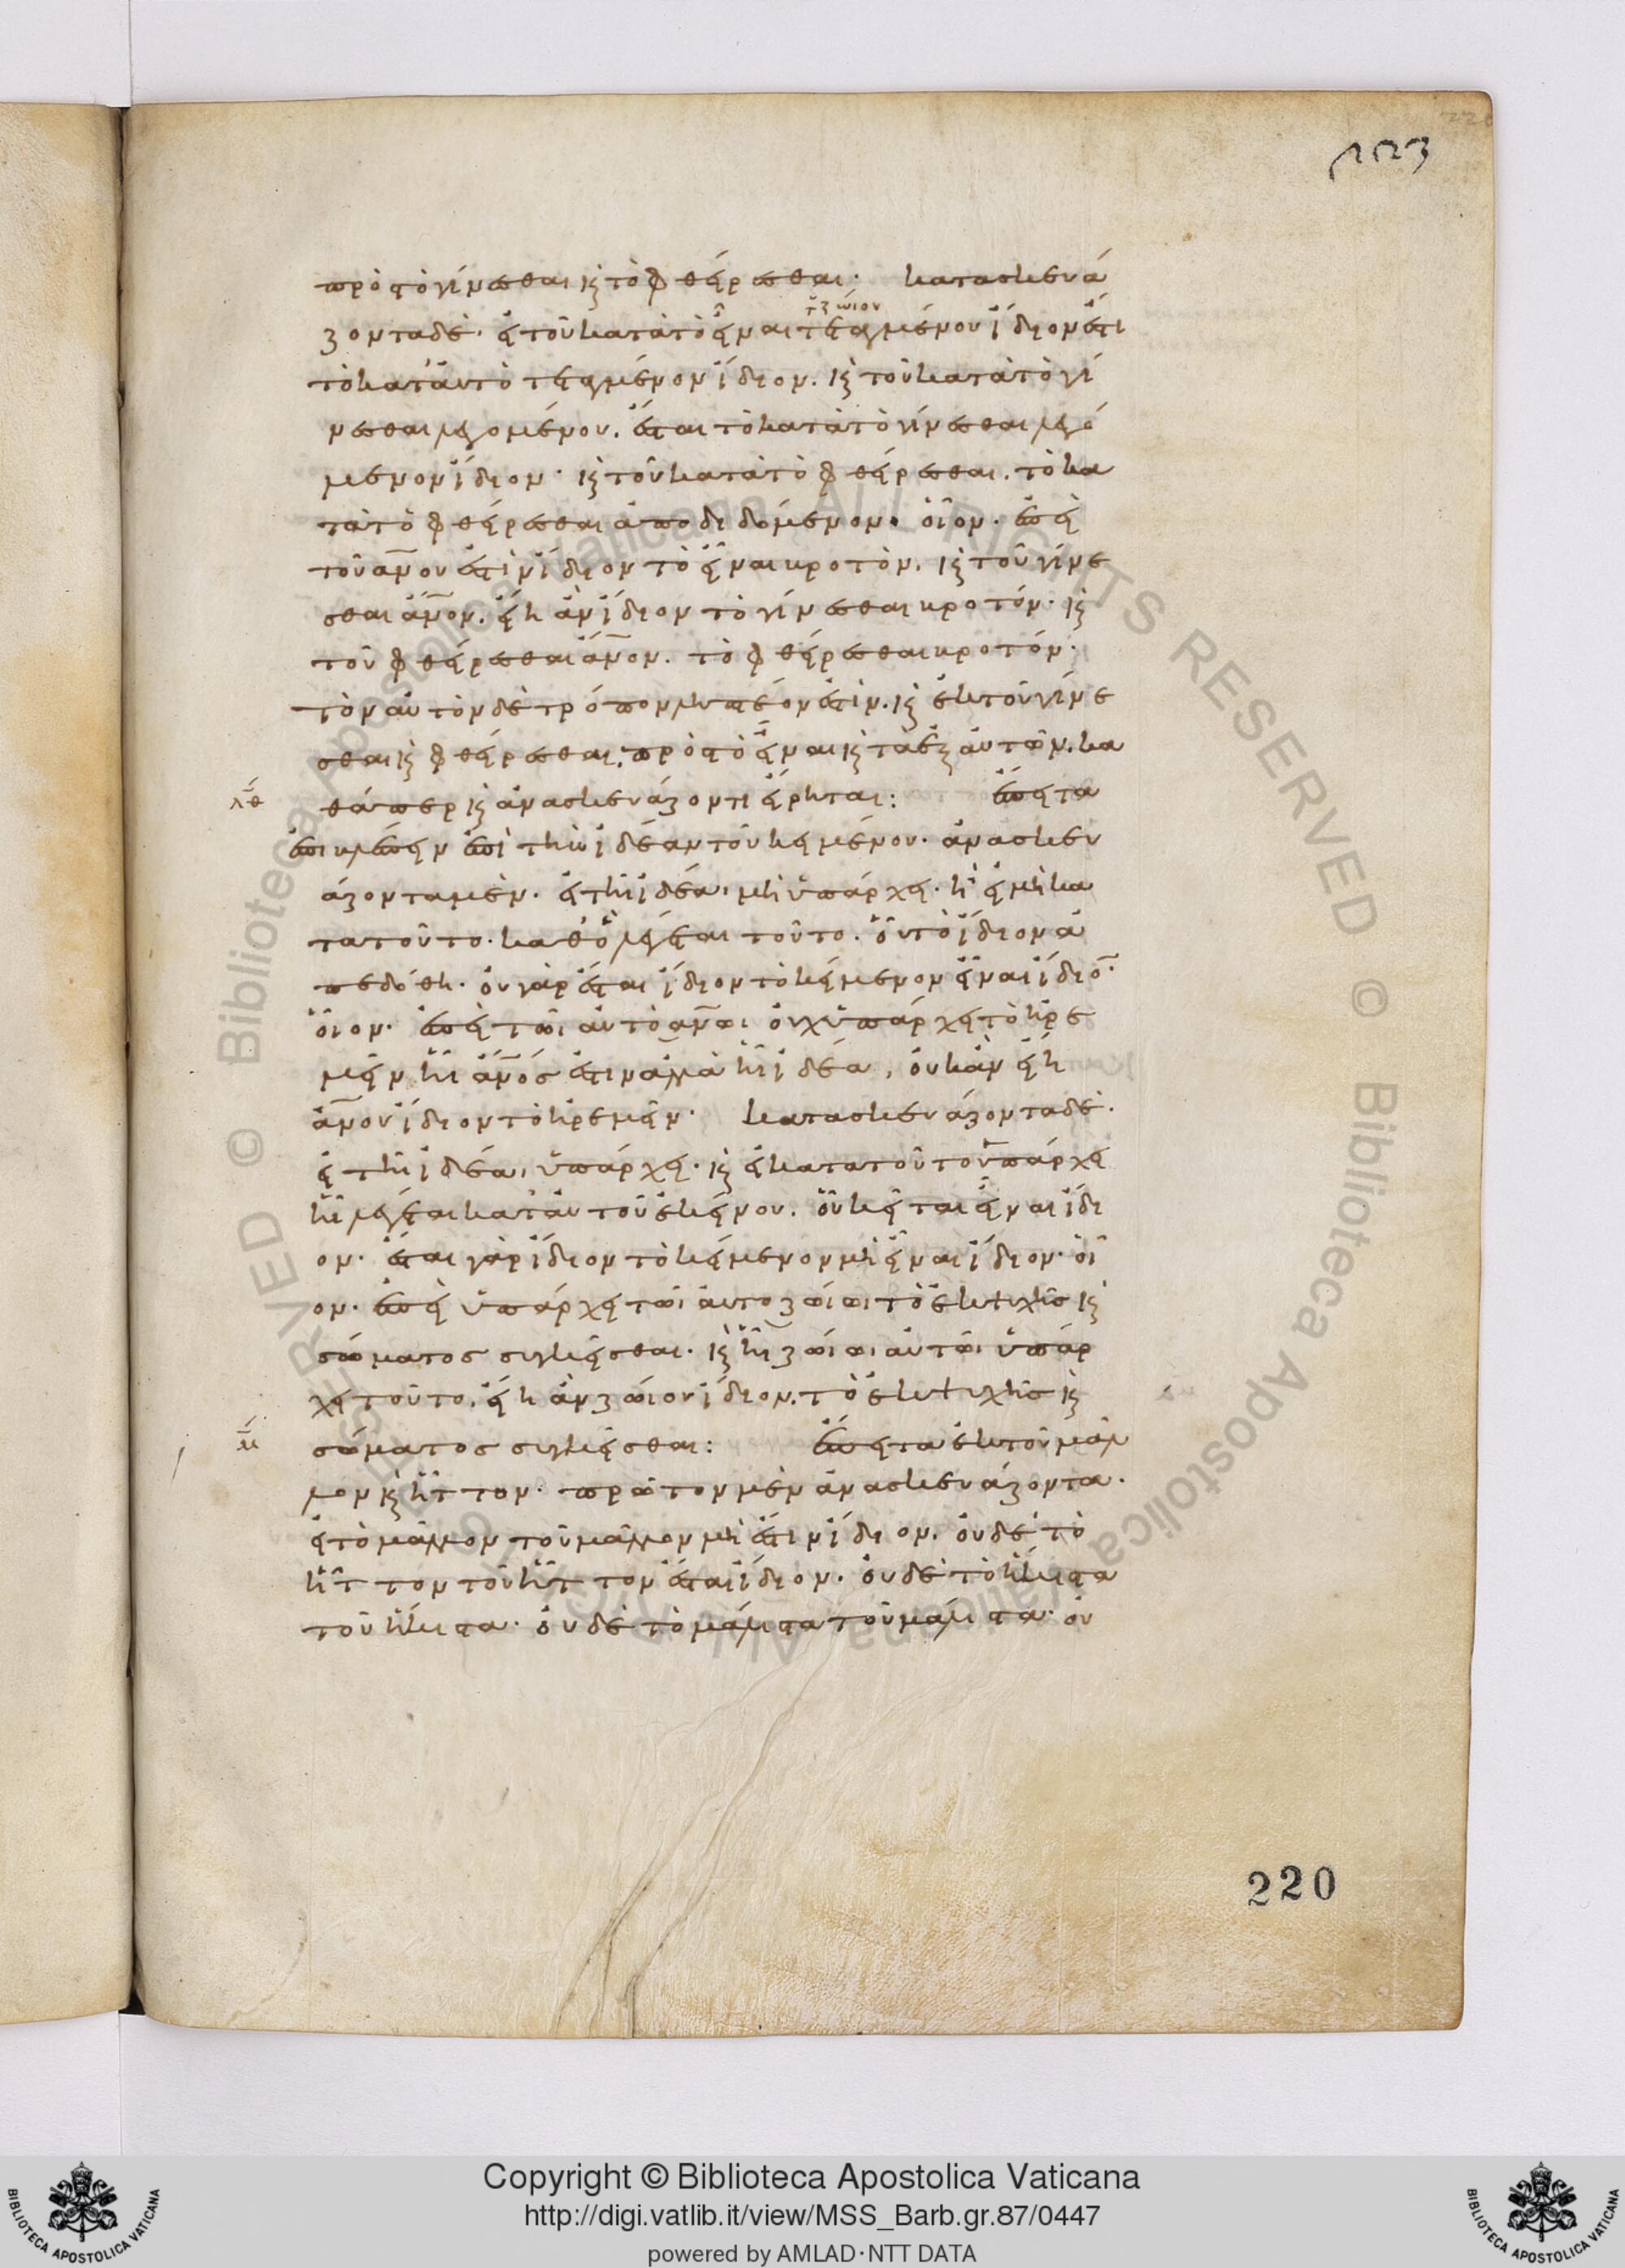 πρὸς τὸ γίνεσθαι καὶ τὸ φθείρεσθαι· κατασκευά
ζοντα δὲ· εἰ τοῦ κατὰ τὸ εἶναι τεταγμένου ἴδιον ἐστι
τὸ κατ' αὐτὸ τεταγμένον ἴδιον. καὶ τοῦ κατὰ τὸ γί
νεσθαι λεγομένου. ἔσται τὸ κατὰ τὸ γίνεσθαι λεγό
μενον ἴδιον· καὶ τοῦ κατὰ τὸ φθείρεσθαι. τὸ κα
τὰ τὸ φθείρεσθαι ἀποδιδόμενον. οἷον. ἐπεὶ
τοῦ ἀνου ἐστὶν ἴδιον τὸ εἶναι βροτὸν. καὶ τοῦ γίνε
σθαι ἄνον. εἴη ἂν ἴδιον τὸ γίνεσθαι βροτόν. καὶ
τοῦ φθείρεσθαι ἄνον. τὸ φθείρεσθαι βροτόν.
τὸν αὐτὸν δὲ τρόπον ληπτέον ἐστίν. καὶ ἐκ τοῦ γίνε
σθαι καὶ φθείρεσθαι, πρὸς τὸ εἶναι καὶ τὰ ἐξ αὐτῶν. κα
λθ θάπερ καὶ ἀνασκευάζοντι εἴρηται: ἔπειτα
ἐπιβλέπειν ἐπὶ τὴν ἰδέαν τοῦ κειμένου. ἀνασκευ
άζοντα μὲν. εἰ τῆι ἰδέαι μὴ ὑπάρχει. ἢ εἰ μὴ κα
τα τοῦτο. καθ' ὃ λέγεται τοῦτο. οὗ τὸ ἴδιον ἀ
πεδόθη. οὐ γὰρ ἔσται ἴδιον τὸ κείμενον εἶναι ἴδιον.
οἷον. ἐπεὶ τῶι αὐτοανωι οὐχ ὑπάρχει τὸ ἠρε
μεῖν ἧι ἄνος ἐστιν ἀλλὰ ἧι ἰδέα, οὐκ ἂν εἴη
ἀνου ἴδιον τὸ ἠρεμεῖν. κατασκευάζοντα δὲ.
εἰ τῆι ἰδέαι ὑπάρχει. καὶ εἰ κατα τοῦτο ὑπάρχει
ἧι λέγεται κατ' αὐτοῦ ἐκείνου. οὗ κεῖται εἶναι ἴδι
ον. ἔσται γὰρ ἴδιον τὸ κείμενον μὴ εἶναι ἴδιον. οἷ
ον. ἐπεὶ ὑπάρχει τῶι αὐτοζώιωι τὸ ἐκ ψυχῆς καὶ
σώματος συγκεῖσθαι. καὶ ἧι ζώιωι αὐτῶι ὑπάρ
χει τοῦτο. εἴη ἂν ζώιου ἴδιον. τὸ ἐκ ψυχῆς καὶ
μ σώματος συγκεῖσθαι: ἔπειτα ἐκ τοῦ μᾶλ
λον καὶ ἧττον. πρῶτον μὲν ἀνασκευάζοντα.
εἰ τὸ μᾶλλον τοῦ μᾶλλον μή ἐστιν ἴδιον. οὐδὲ τὸ
ἧττον τοῦ ἧττον ἔσται ἴδιον. οὐδὲ τὸ ἥκιστα
τοῦ ἥκιστα. οὐδὲ τὸ μάλιστα τοῦ μάλιστα. οὐ
220
Copyright © Biblioteca Apostolica Vaticana
http://digi.vatlib.it/view/MSS_Barb.gr.87/0447
powered by AMLAD·NTT DATA